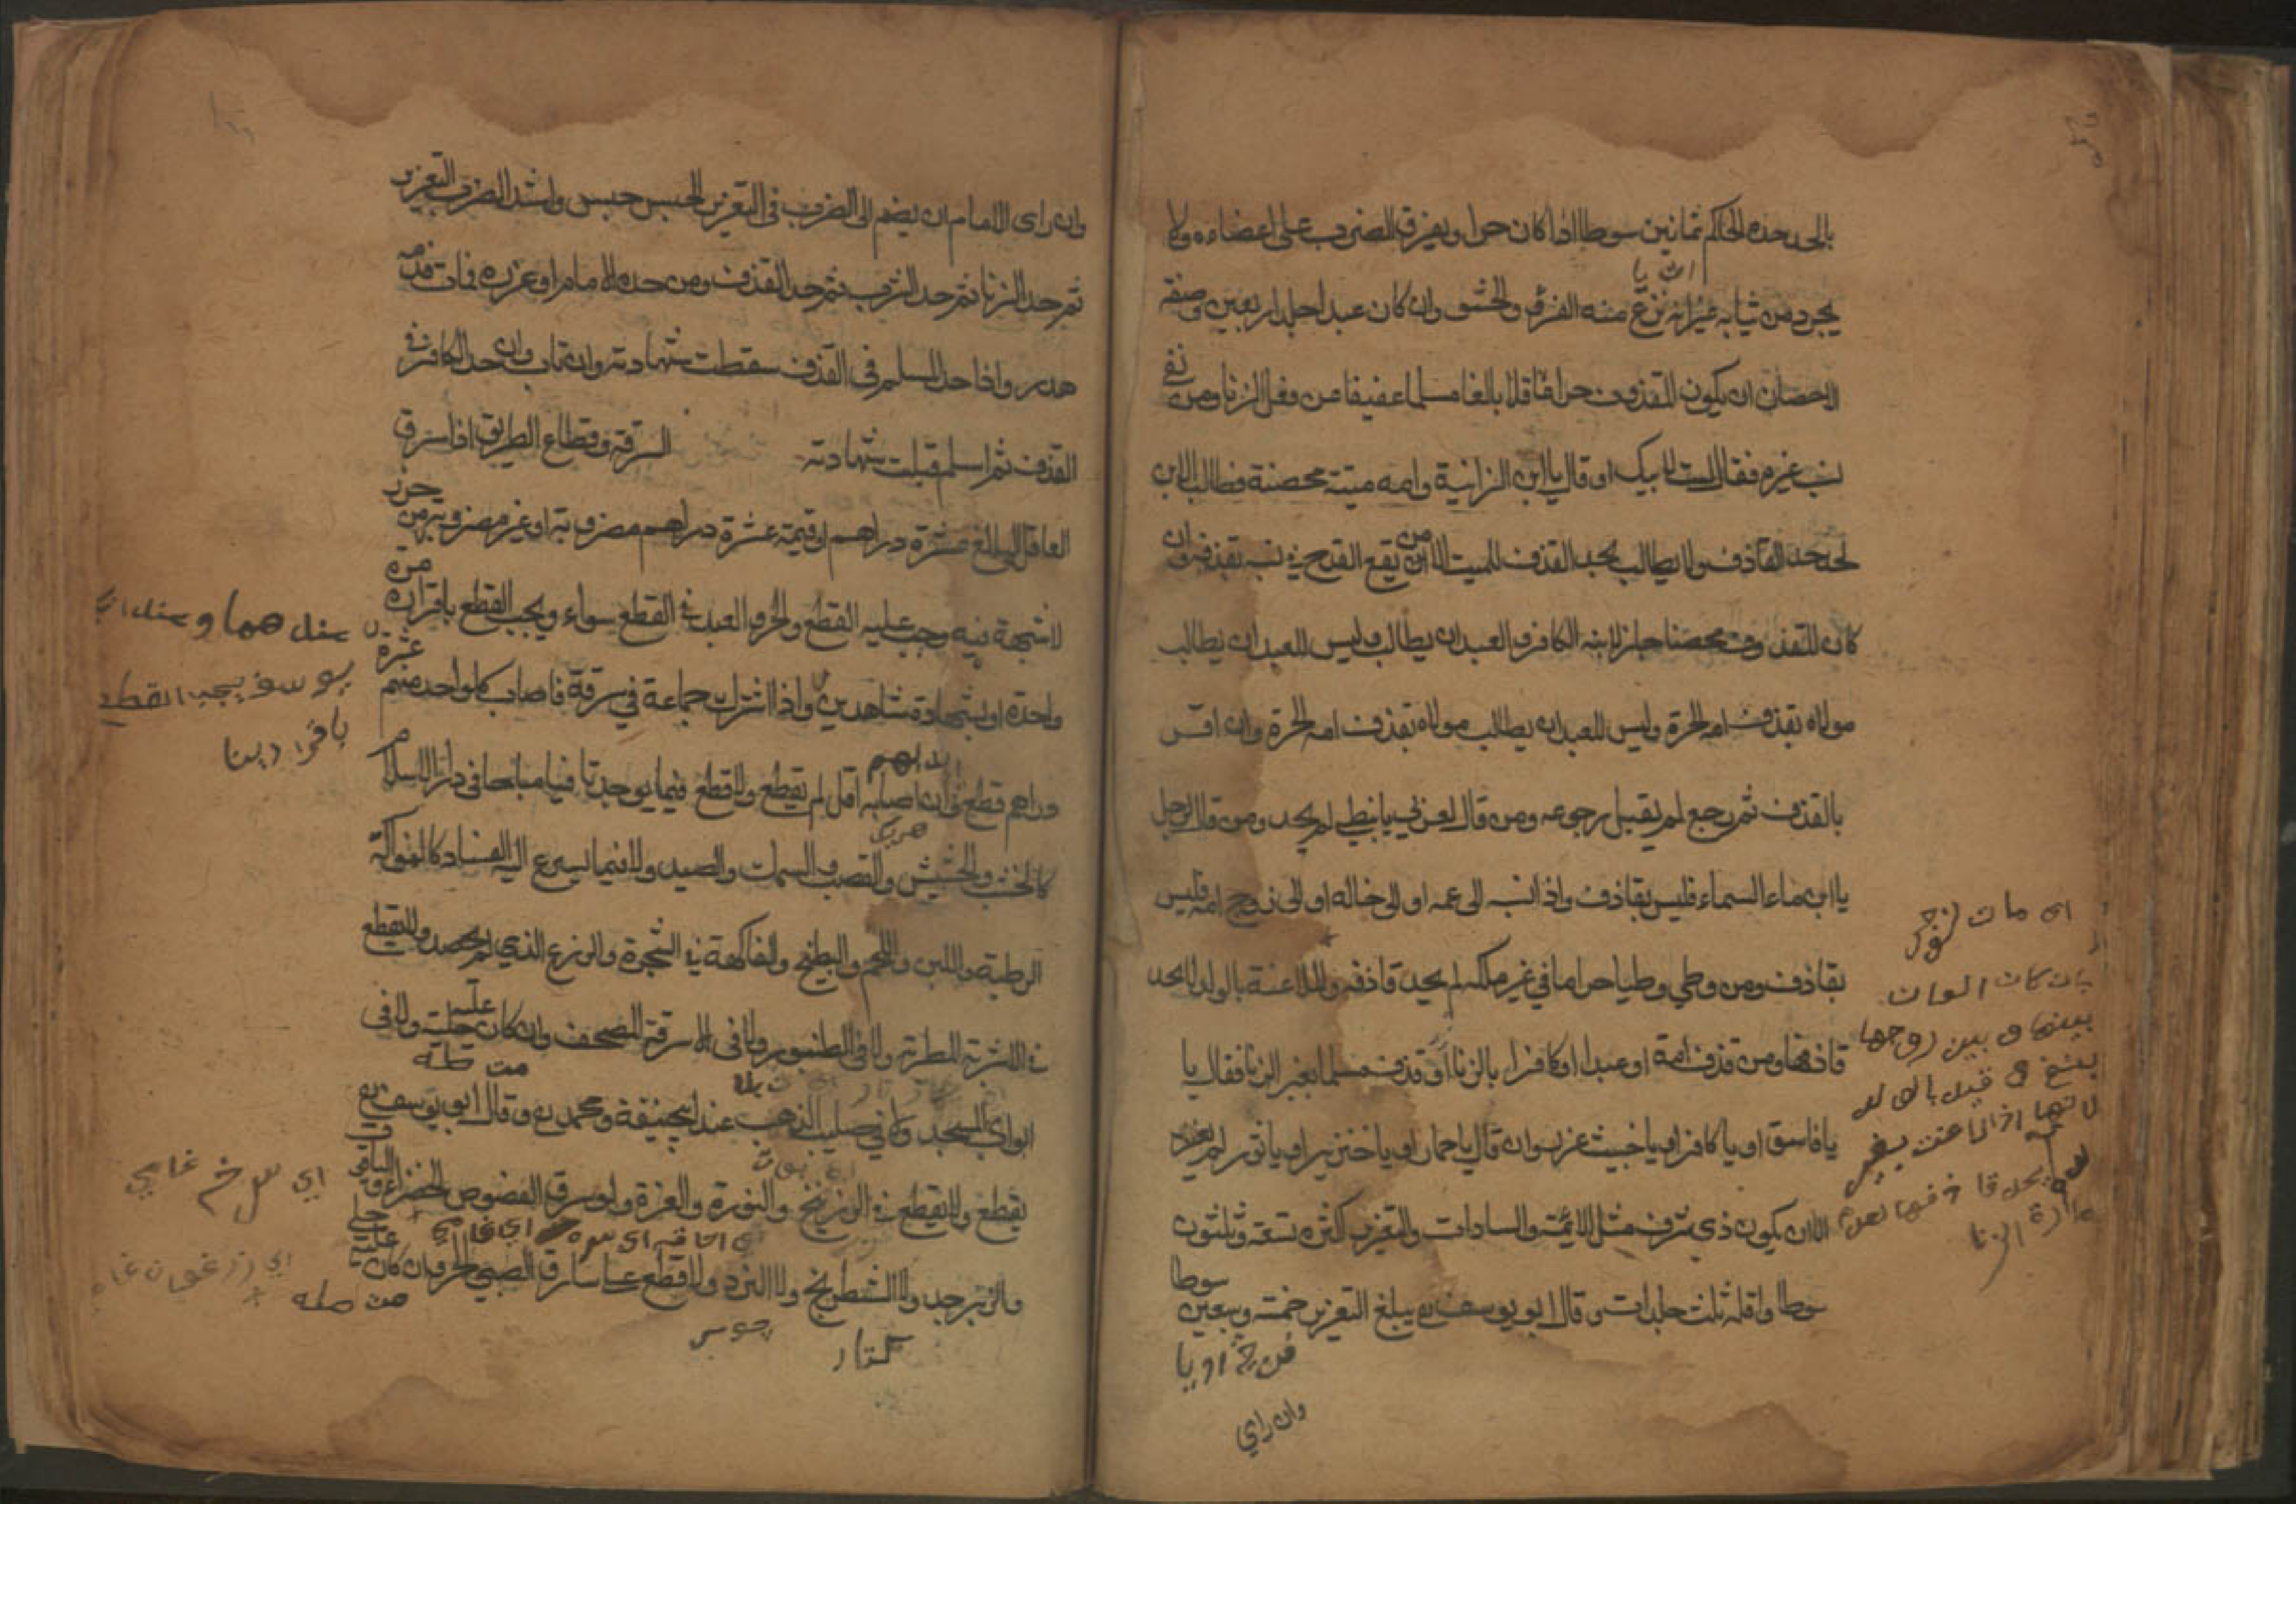 بالحد حده الحاكم ثمانين سوطا اذا كان حرا ويفرق الضرب على اعضاءه ولا
يجرد من ثيابه غير انه نزع منه الفرو والحشو وان كان عبدا جلد اربعين وصفة
الاحصان ان يكون المقذوف حرا عاقلا بالغا مسلما عفيفا عن فعل الزنا ومن نفى
نسب غيره فقال لست لابيك او قال يا ابن الزانية وامه ميتة محصنة فطالب الابن
لحد حد القاذف ولا يطالب بحد القذف للميت الا من يقع القدح في نسبه بقذفه وان
كان المقذوف محصنا جاز لابنه الكافر والعبد ان يطالب وليس للعبد ان يطالب
مولاه بقذف امه الحرة وليس للعبد ان يطالب مولاه بقذف امه الحرة وان اقر
بالقذف ثم رجع لم يقبل رجوعه ومن قال لعربي يا نبطي لم يحد ومن قال لرجل
يا ابن ماء السماء فليس بقاذف واذا نسبه الى عمه او الى خاله او الى زوج امه فليس
بقاذف ومن وطي وطيا حراما في غير ملكه لم يحد قاذفه والملاعنة بالولد لا يحد
قاذفها ومن قذف امة او عبدا او كافرا بالزنا او قذف مسلما بغير الزنا فقال يا
يا فاسق او يا كافر او يا خبيث عزر وان قال يا حمار او يا خنزير او يا ثور لم يعزر
الا ان يكون ذي شرف مثل الائمة والسادات والتعزير اكثره تسعة وثلثون
سوطا واقله ثلث جلدات وقال ابو يوسف يبلغ التعزير خمسة وسبعين سوطا
وان راي
بينها و بين زوجها
بنفي
لانها اذا لاعنت بغير
يحد قاذفها لعدم
الزنا
وان راى الامام ان يضم الى الضرب في التعزير الحبس حبس واشد الضرب التعزير
ثم حد الزنا ثم حد الشرب ثم حد القذف ومن حده الامام او عزره فمات فدمه
هدر واذا حد المسلم في القذف سقطت شهادته وان تاب وان حد الكافر في
القذف ثم اسلم قبلت شهادته السرقة وقطاع الطريق اذا سرق
العاقل البالغ عشرة دراهم او قيمته عشرة دراهم مضروبة او غير مضروبة من حرز
لا شبهة فيه وجب عليه القطع والحر والعبد في القطع سواء ويجب القطع باقراره مرة
واحدة او بشهادة شاهدين واذا اشترك جماعة في سرقة فاصاب كل واحد منهم عشرة
دراهم قطع وان اصابه اقل لم يقطع ولا قطع فيما يوجد تافها مباحا في دار الاسلام
كالخشب والحشيش والقصب والسمك والصيد ولا فيما يسرع اليه الفساد كالفواكة
الرطبة واللبن واللحم والبطيخ والفاكهة في الشجرة والزرع الذي لم يحصد ولا يقطع
في الاشربة المطربة ولا في الطنبور ولا في سرقة المصحف وان كان عليه حلية ولا في
ابواب المسجد ولا في صليب الذهب عند ابي حنيفة ومحمد وقال ابو يوسف
يقطع ولا يقطع في الزرنيخ والنورة والمغرة ولو سرق الفصوص الخضراء والياقوت
والزبرجد ولا الشطرنج ولا النرد ولا قطع على سارق الصبي الحر وان كان عليه حلي
عندهما و عند ابي
يوسف يجب القطع